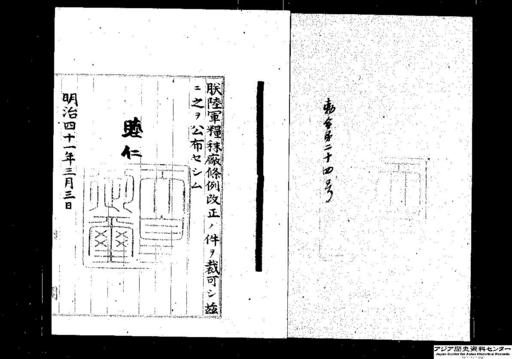 勅令第二十四号
朕陸軍糧秣廠條例改正ノ件ヲ裁可シ茲
ニ之ヲ公布セシム
睦仁
明治四十一年三月三日
アジア歴史資料センター
Japan Center for Asian Historical Records